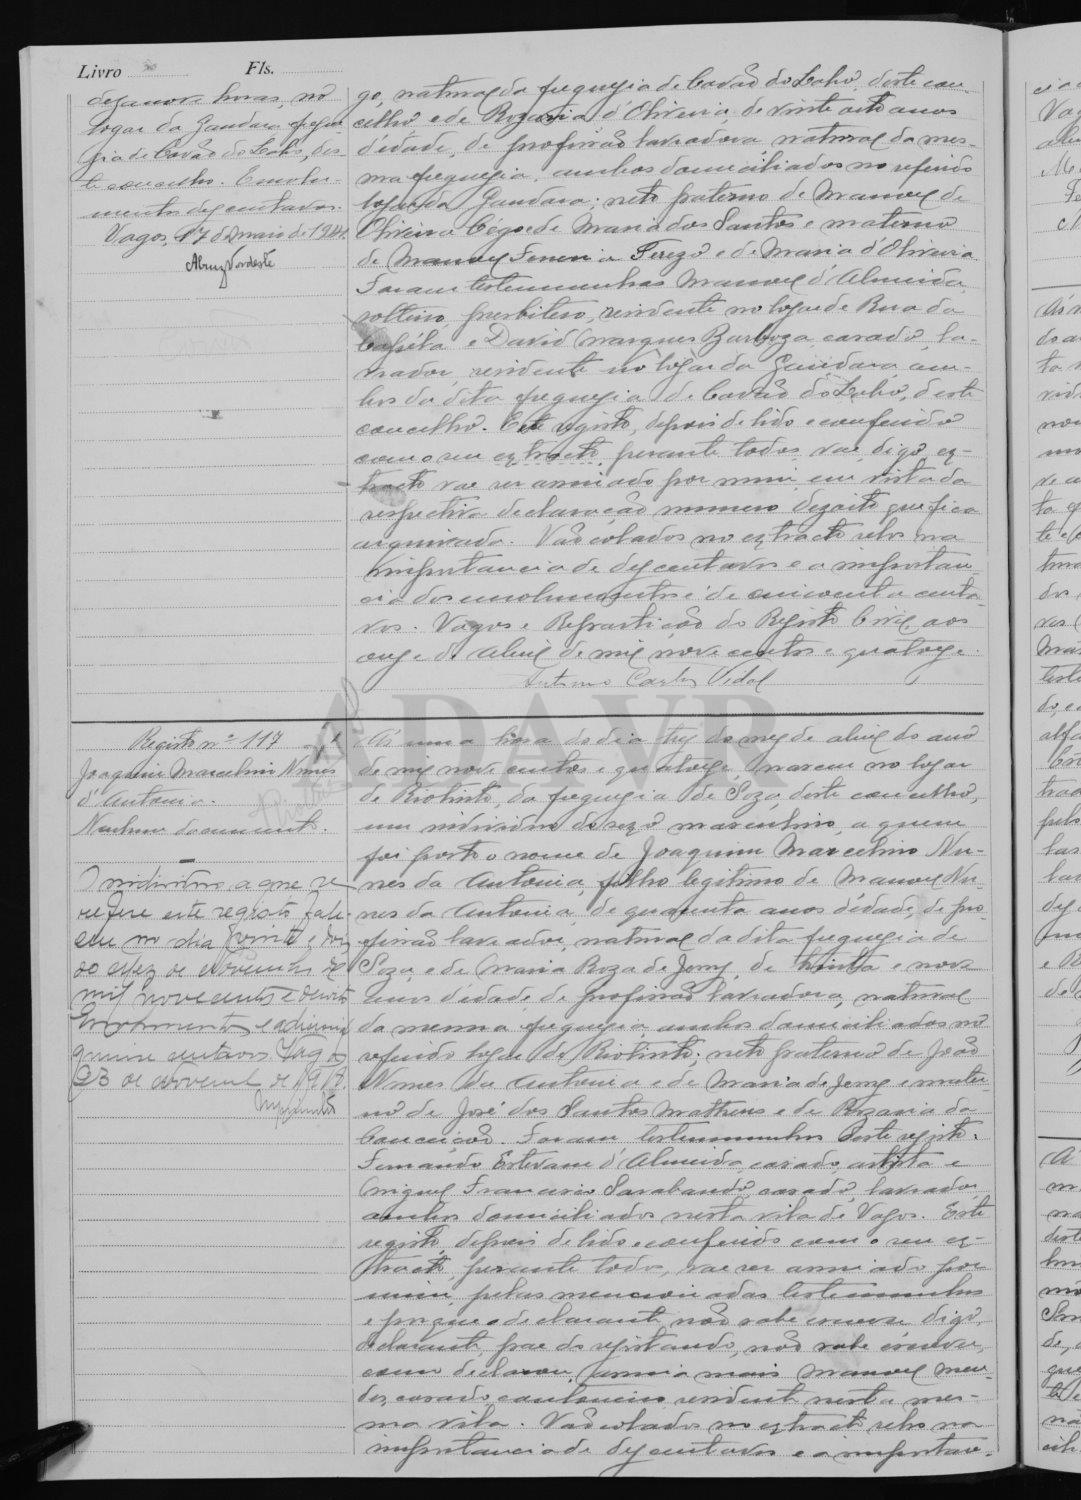 Livro Fls.
dezanove horas, no
logar da Gandara, fregue-
sia de Covão do Lobo, des-
te concelho. Emolu-
mentos dez centavos.
Vagos, 17 de Maio de 1941.
go, natural da freguesia de Covão do Lobo, deste con-
celho e de Rozaria d'Oliveira, de vinte oito anos
d'edade, de profissão lavradora, natural da mes-
ma freguezia, ambos domiciliados no referido
logar da Gandara; neto paterno de Manoel de
Oliveira Cégo e de Maria dos Santos e materno
de Manoel Ferreira Serezo e de Maria d'Oliveira
Foram testemunhas Manoel d'Almeida,
solteiro, presbitero, residente no logar de Rua da
Capéla e David Marques Barboza, casado, la-
vrador, residente no logar da Gandara am-
bos da dita freguezia de Covão do Lobo, deste
concelho. Este registo, depois de lido e conferido
com o seu extracto, perante todos vae, digo, ex-
tracto vae ser assinado por mim, em vista da
respectiva declaração numero dezoito que fica
arquivada. Vão colados no extracto selos na
importancia de dez centavos e a importan-
cia dos emolumentos é de cincoenta centa-
vos. Vagos e Repartição do Registo Civil, aos
onze de Abril de mil nove centos e quatorze.
Carlos Vidal
ADAVR
Registo nº 117
Joaquim Marcelino Nunes
d'Antonia.
Nenhum documento.
O individuo a que se
refere este registo fale-
ceu no dia vinte e dois
do mez de novembro de
mil novecentos e dezoito
quinze centavos Vagos
23 de novembro de 1918.
Á uma hora do dia trez do mez de abril do ano
de mil nove centos e quatorze, nasceu no logar
de Riotinto, da freguesia de Soza, deste concelho,
um individuo do sexo masculino, a quem
foi posto o nome de Joaquim Marcelino Nu-
nes da Antonia, filho legitimo de Manoel Nu-
nes da Antonia, de quarenta anos d'edade, de pro-
fissão lavrador, natural da dita freguesia de
Soza, e de Maria Roza de Jezus, de trinta e nove
anos d'edade, de profissão lavradora, natural
da mesma freguezia ambos domiciliados no
referido logar de Riotinto; neto paterno de João
Nunes da Antonia e de Maria de Jezus e mater-
no de José dos Santos Matheus e de Rozaria da
Conceição. Foram testemunhas deste registo:
Fernando Estevam d'Almeida, casado, artista e
Miguel Francisco Sarabando, casado, lavrador,
ambos domiciliados nesta vila de Vagos. Este
registo, depois de lido e conferido com o seu ex-
tracto, perante todos, vae ser assinado por
mim, pelas mencionadas testemunhas
e porque o declarante não sabe escrever digo,
declarante, pae do registando, não sabe escrever,
como declarou, assina mais Manoel Men-
des, casado, cantoneiro, residente nesta mes-
ma vila. Vão colados no extracto selos na
importancia de dez centavos e a importan-